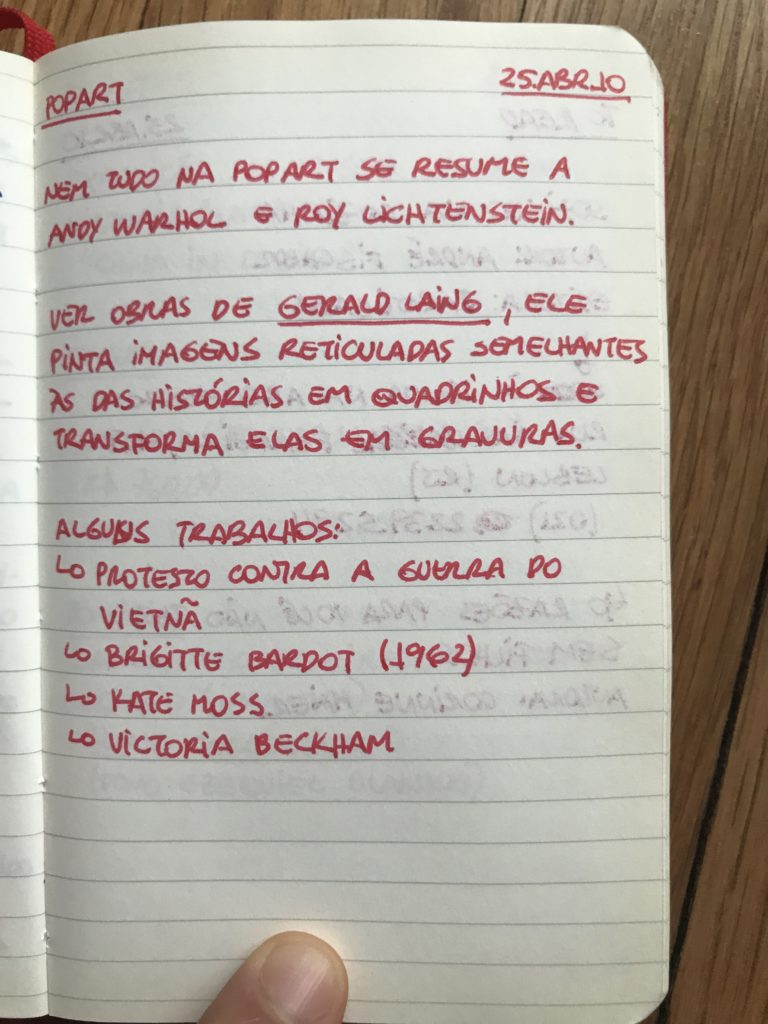 POPART 25.ABR.10
NEM TUDO NA POPART SE RESUME A
ANDY WARHOL E ROY LICHTENSTEIN.
VER OBRAS DE GERALD LAING, ELE
PINTA IMAGENS RETICULADAS SEMELHANTES
ÀS DAS HISTÓRIAS EM QUADRINHOS E
TRANSFORMA ELAS EM GRAVURAS.
ALGUNS TRABALHOS:
↳ PROTESTO CONTRA A GUERRA DO
VIETNÃ
↳ BRIGITTE BARDOT (1962)
↳ KATE MOSS
↳ VICTORIA BECKHAM